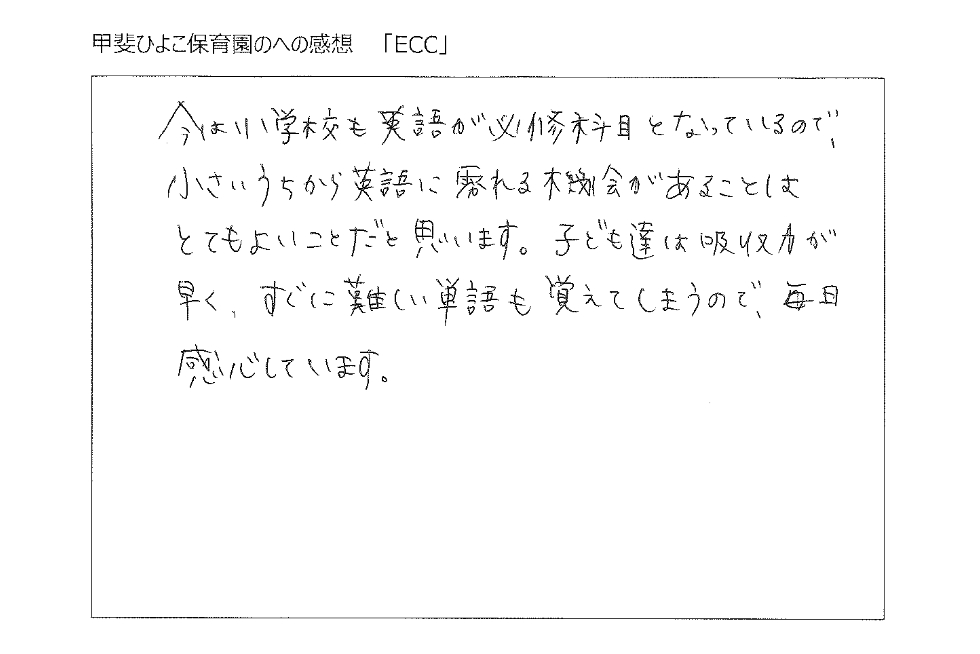 甲斐ひよこ保育園のへの感想　「ECC」
今は小学校も英語が必修科目となっているので、
小さいうちから英語に触れる機会があることは
とてもよいことだと思います。子ども達は吸収力が
早く、すぐに難しい単語も覚えてしまうので、毎日
感心しています。